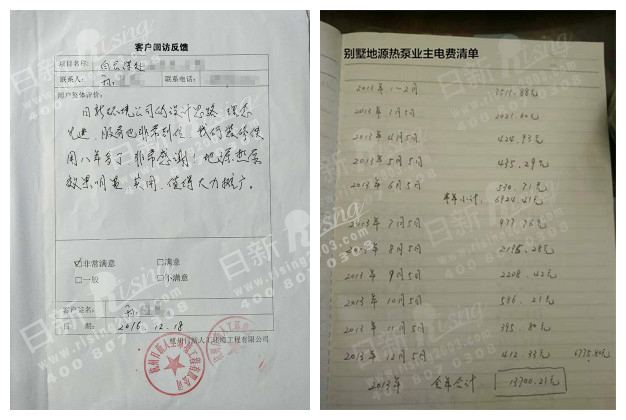 客户回访反馈
项目名称: 白云深处
联系人: 孙 联系电话:
用户整体评价:
日新环境公司的设计思路 理念
先进、服务也非常到位 我们装修使
用八年多了 非常感谢! 地源热泵
效果明显 实用、值得大力推广。
☑非常满意 □满意
□一般 □不满意
客户签名: 孙
日 期: 2016.12.18
杭州日新人工环境工程有限公司
别墅地源热泵业主电费清单
2013年1~2月 3511.88元
2013年3月5日 2021.60元
2013年4月5日 424.93元
2013年5月5日 435.29元
2013年6月5日 530.71元
半年小计: 6924.41元
2013年7月5日 977.76元
2013年8月5日 2195.28元
2013年9月5日 2208.42元
2013年10月5日 586.21元
2013年11月5日 395.80元
2013年12月5日 412.33元 6775.80元
2013年 全年合计 13700.21元
日新 rising
www.rising163.com
400 807 9308